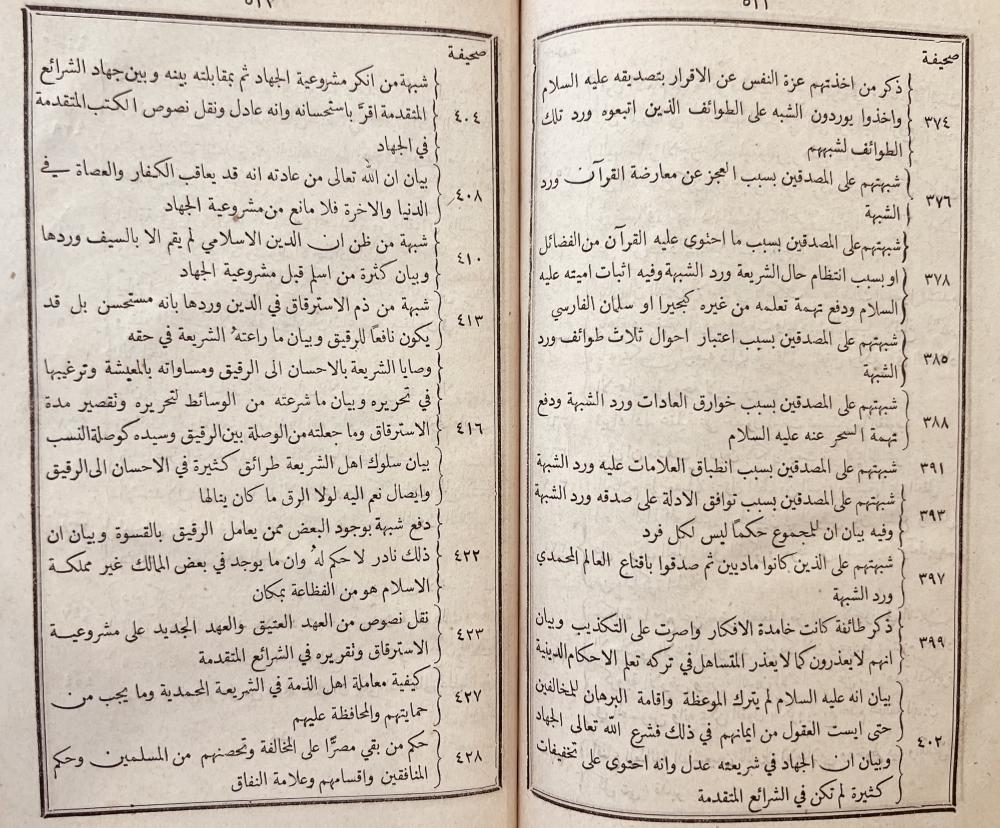 صحيفة
ذكر من اخذتهم عزة النفس عن الاقرار بتصديقه عليه السلام
٣٧٤ واخذوا يوردون الشبه على الطوائف الذين اتبعوه ورد تلك
الطوائف لشبههم
٣٧٦ شبهتهم على المصدقين بسبب العجز عن معارضة القرآن ورد
الشبهة
شبهتهم على المصدقين بسبب ما احتوى عليه القرآن من الفضائل
٣٧٨ او بسبب انتظام حال الشريعة ورد الشبهة وفيه اثبات اميته عليه
السلام ودفع تهمة تعلمه من غيره كبحيرا او سلمان الفارسي
٣٨٥ شبهتهم على المصدقين بسبب اعتبار احوال ثلاث طوائف ورد
الشبهة
٣٨٨ شبهتهم على المصدقين بسبب خوارق العادات ورد الشبهة ودفع
تهمة السحر عنه عليه السلام
٣٩١ شبهتهم على المصدقين بسبب انطباق العلامات عليه ورد الشبهة
٣٩٣ شبهتهم على المصدقين بسبب توافق الادلة على صدقه ورد الشبهة
وفيه بيان ان للمجموع حكمًا ليس لكل فرد
٣٩٧ شبهتهم على الذين كانوا ماديين ثم صدقوا باقناع العالم المحمدي
ورد الشبهة
٣٩٩ ذكر طائفة كانت خامدة الافكار واصرت على التكذيب وبيان
انهم لا يعذرون كما لا يعذر المتساهل في تركه تعلم الاحكام الدينية
بيان انه عليه السلام لم يترك الموعظة واقامة البرهان للمخالفين
حتى ايست العقول من ايمانهم في ذلك فشرع الله تعالى الجهاد
٤٠٢ وبيان ان الجهاد في شريعته عدل وانه احتوى على تخفيفات
كثيرة لم تكن في الشرائع المتقدمة
صحيفة
شبهة من انكر مشروعية الجهاد ثم بمقابلته بينه وبين جهاد الشرائع
٤٠٤ المتقدمة اقرَّ باستحسانه وانه عادل ونقل نصوص الكتب المتقدمة
في الجهاد
٤٠٨ بيان ان الله تعالى من عادته انه قد يعاقب الكفار والعصاة في
الدنيا والاخرة فلا مانع من مشروعية الجهاد
٤١٠ شبهة من ظن ان الدين الاسلامي لم يقم الا بالسيف وردها
وبيان كثرة من اسلم قبل مشروعية الجهاد
٤١٣ شبهة من ذم الاسترقاق في الدين وردها بانه مستحسن بل قد
يكون نافعًا للرقيق وبيان ما راعته الشريعة في حقه
وصايا الشريعة بالاحسان الى الرقيق ومساواته بالمعيشة وترغيبها
في تحريره وبيان ما شرعته من الوسائط لتحريره وتقصير مدة
٤١٦ الاسترقاق وما جعلته من الوصلة بين الرقيق وسيده كوصلة النسب
بيان سلوك اهل الشريعة طرائق كثيرة في الاحسان الى الرقيق
وايصال نعم اليه لولا الرق ما كان ينالها
دفع شبهة بوجود البعض ممن يعامل الرقيق بالقسوة وبيان ان
٤٢٢ ذلك نادر لا حكم لهُ وان ما يوجد في بعض الممالك غير مملكة
الاسلام هو من الفظاعة بمكان
٤٢٣ نقل نصوص من العهد العتيق والعهد الجديد على مشروعية
الاسترقاق وتقريره في الشرائع المتقدمة
٤٢٧ كيفية معاملة اهل الذمة في الشريعة المحمدية وما يجب من
حمايتهم والمحافظة عليهم
٤٢٨ حكم من بقي مصرًّا على المخالفة وتحصنهم من المسلمين وحكم
المنافقين واقسامهم وعلامة النفاق